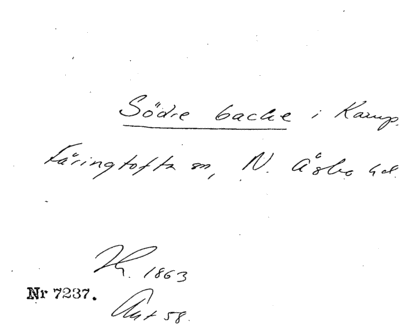 Södre backe i Kamp.
Färingtofta sn, N. Åsbo hd.
1863
Nr 7237.
58.